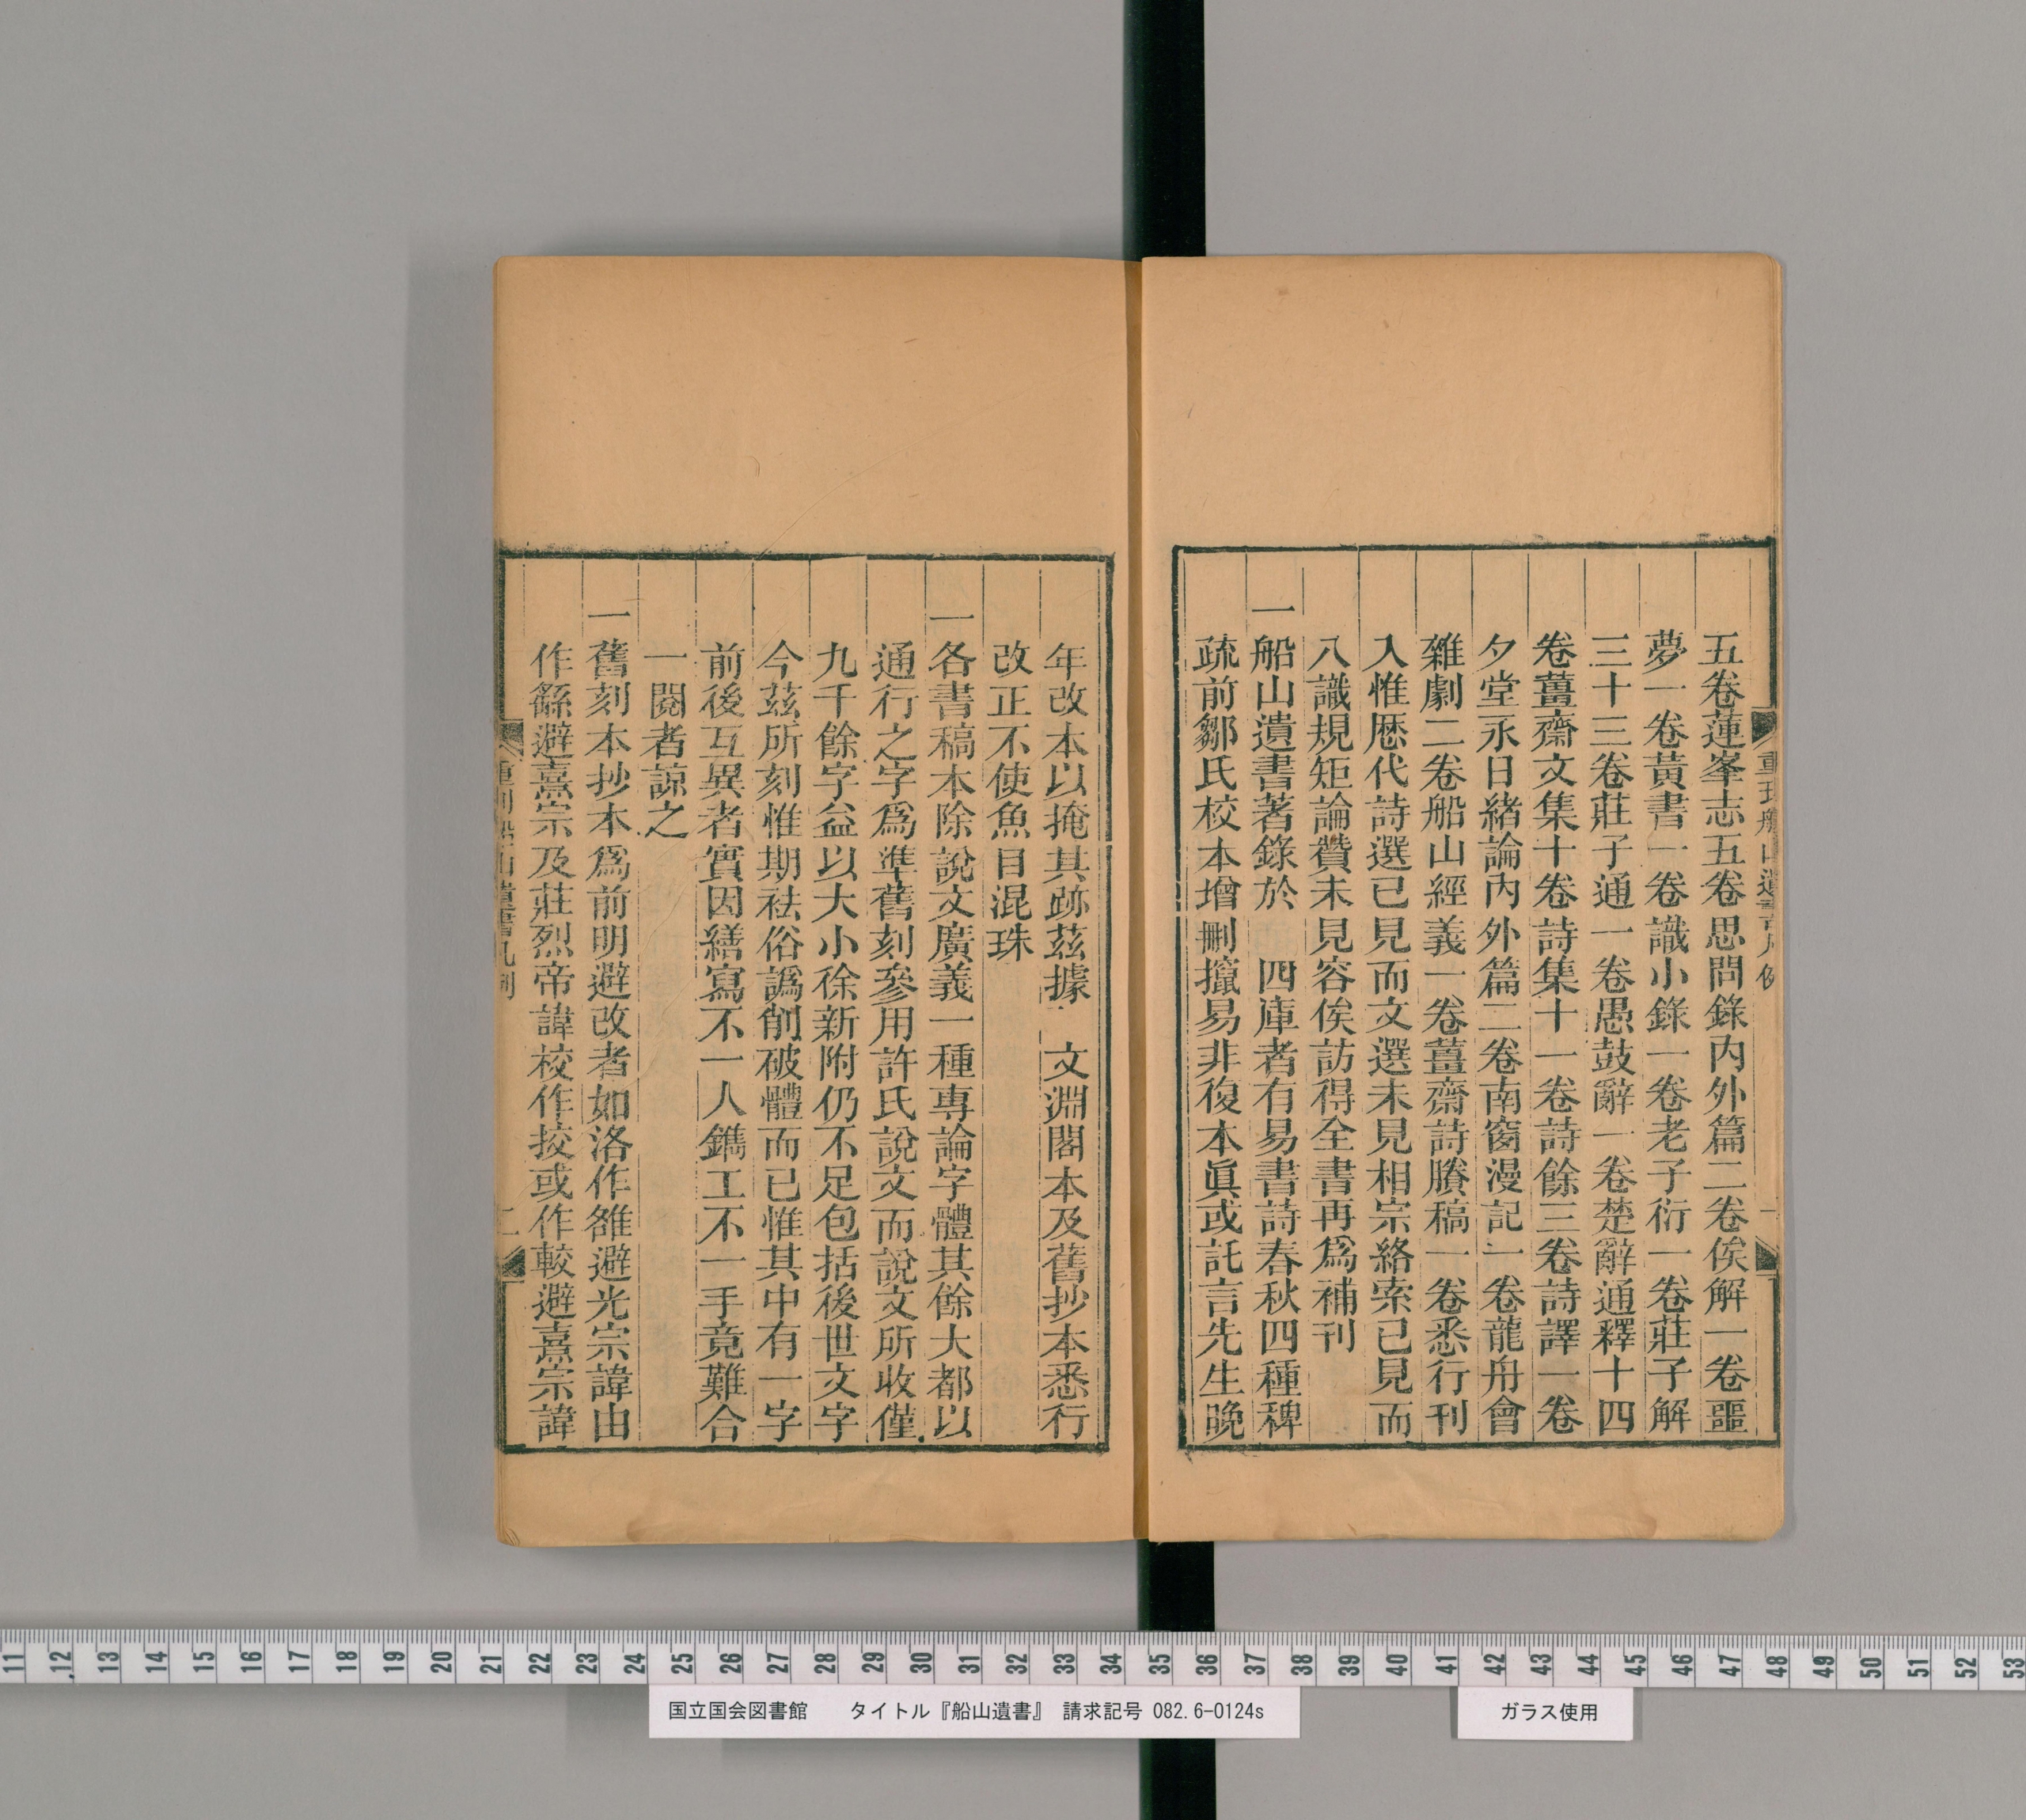 五卷蓮峯志五卷思問錄內外篇二卷俟解一卷噩
夢一卷黃書一卷識小錄一卷老子衍一卷莊子解
三十三卷莊子通一卷愚鼓辭一卷楚辭通釋十四
卷薑齋文集十卷詩集十一卷詩餘三卷詩譯一卷
夕堂永日緒論內外篇二卷南窗漫記一卷龍舟會
雜劇二卷船山經義一卷薑齋詩賸稿一卷悉行刊
入惟歷代詩選已見而文選未見相宗絡索已見而
八識規矩論贊未見容俟訪得全書再爲補刊
一船山遺書著錄於 四庫者有易書詩春秋四種稗
疏前鄒氏校本增刪攛易非復本眞或託言先生晚
年改本以掩其跡茲據 文淵閣本及舊抄本悉行
改正不使魚目混珠
一各書稿本除說文廣義一種專論字體其餘大都以
通行之字爲準舊刻參用許氏說文而說文所收僅
九千餘字益以大小徐新附仍不足包括後世文字
今茲所刻惟期祛俗譌削破體而已惟其中有一字
前後互異者實因繕寫不一人鐫工不一手竟難合
一閱者諒之
一舊刻本抄本爲前明避改者如洛作雒避光宗諱由
作繇避熹宗及莊烈帝諱校作挍或作較避熹宗諱
重刊船山遺書凡例
二
国立国会図書館 タイトル『船山遺書』 請求記号 082.6-0124s
ガラス使用
11 12 13 14 15 16 17 18 19 20 21 22 23 24 25 26 27 28 29 30 31 32 33 34 35 36 37 38 39 40 41 42 43 44 45 46 47 48 49 50 51 52 53